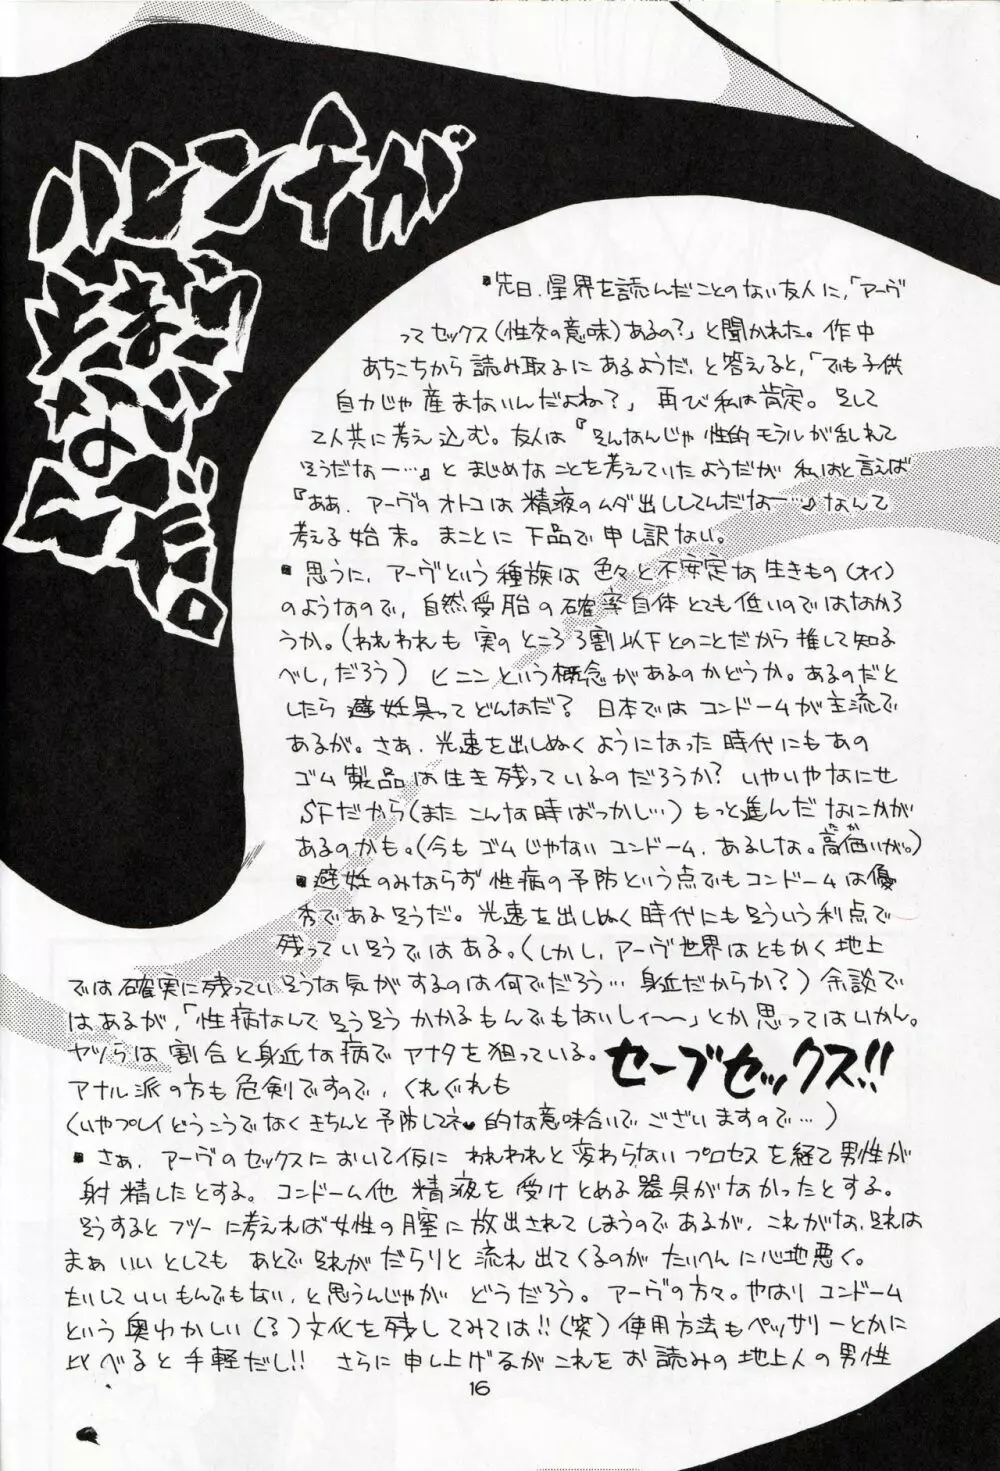 ハヒンナが
とまら
ない
ど。
■先日、星界を読んだことのない友人に、「アーヴ
ってセックス(性交の意味)あるの?」と聞かれた。作中
あちこちから読み取るにあるようだ、と答えると、「でも子供
自力じゃ産まないんだよね?」再び私は肯定。そして
2人共に考え込む。友人は『そんなんじゃ性的モラルが乱れて
そうだなー…』とまじめなことを考えていたようだが私はと言えば
『ああ、アーヴのオトコは精液のムダ出ししてんだなー…』なんて
考える始末。まことに下品で申し訳ない。
■思うに、アーヴという種族は色々と不安定な生きもの(オイ)
のようなので、自然受胎の確率自体とても低いのではなかろ
うか。(われわれも実のところ3割以下とのことだから推して知る
べし、だろう)ヒニンという概念があるのかどうか。あるのだと
したら避妊具ってどんなだ?日本ではコンドームが主流で
あるが。さあ、光速を出しぬくようになった時代にもあの
ゴム製品は生き残っているのだろうか?いやいやなにせ
SFだから(またこんな時ばっかし…)もっと進んだなにかが
あるのかも。(今もゴムじゃないコンドーム、あるしな。高価いが。)
■避妊のみならず性病の予防という点でもコンドームは優
秀であるそうだ。光速を出しぬく時代にもそういう利点で
残っていそうではある。(しかし、アーヴ世界はともかく地上
では確実に残っていそうな気がするのは何でだろう…身近だからか?)余談で
はあるが、「性病なんてそうそうかかるもんでもないしィ〜〜」とか思ってはいかん。
ヤツらは割合と身近な病でアナタを狙っている。
セーブセックス!!
アナル派の方も危剣ですので、くれぐれも
(いやプレイどうこうでなくきちんと予防してネ♥的な意味合いでございますので…)
■さあ、アーヴのセックスにおいて仮にわれわれと変わらないプロセスを経て男性が
射精したとする。コンドーム他精液を受けとめる器具がなかったとする。
そうするとフツーに考えれば女性の月膣に放出されてしまうのであるが、これがな、それは
まぁいいとしてもあとでそれがだらりと流れ出てくるのがたいへんに心地悪く。
たいしていいもんでもない、と思うんじゃがどうだろう。アーヴの方々。やはりコンドーム
という奥わかしい(る)文化を残してみては!!(笑)使用方法もペッサリーとかに
比べると手軽だし!!さらに申し上げるがこれをお読みの地上人の男性
16